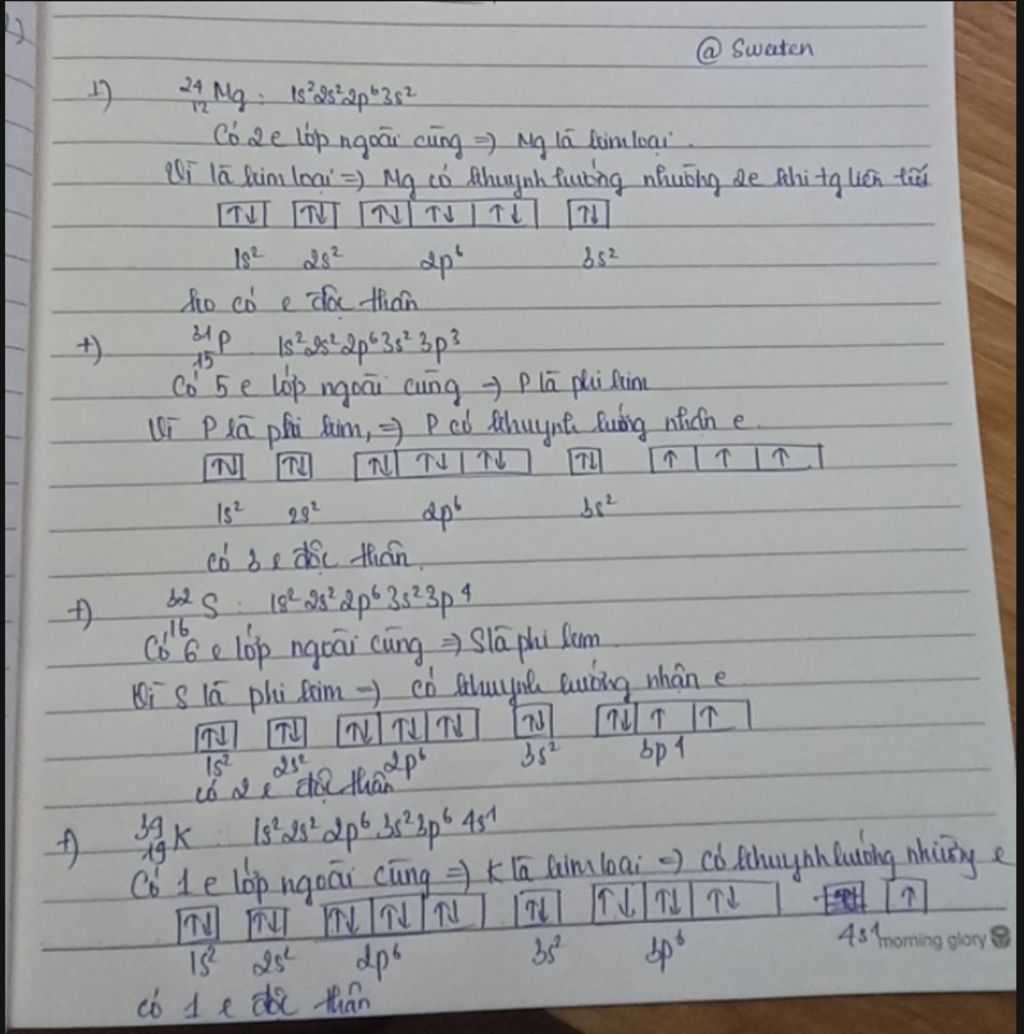 @ Swaten
1) ²⁴₁₂Mg : 1s²2s²2p⁶3s²
Có 2e lớp ngoài cùng => Mg là kim loại.
Vì là kim loại => Mg có khuynh hướng nhường 2e khi tg liên
↑↓ ↑↓ ↑↓ ↑↓ ↑↓ ↑↓
1s² 2s² 2p⁶ 3s²
ko có e độc thân
+) ³¹₁₅P 1s²2s²2p⁶3s²3p³
Có 5 e lớp ngoài cùng → P là phi kim
Vì P là phi kim, => P có khuynh hướng nhận e.
↑↓ ↑↓ ↑↓ ↑↓ ↑↓ ↑↓ ↑ ↑ ↑
1s² 2s² 2p⁶ 3s²
có 3 e độc thân.
+) ³²₁₆S : 1s²2s²2p⁶3s²3p⁴
Có 6 e lớp ngoài cùng => S là phi kim
Vì S là phi kim => có khuynh hướng nhận e
↑↓ ↑↓ ↑↓ ↑↓ ↑↓ ↑↓ ↑↓ ↑ ↑
1s² 2s² 2p⁶ 3s² 3p⁴
có 2 e độc thân
+) ³⁹₁₉K : 1s²2s²2p⁶3s²3p⁶4s¹
Có 1 e lớp ngoài cùng => K là kim loại => có khuynh hướng nhường e
↑↓ ↑↓ ↑↓ ↑↓ ↑↓ ↑↓ ↑↓ ↑↓ ↑↓ ↑
1s² 2s² 2p⁶ 3s² 3p⁶ 4s¹
morning glory
có 1 e độc thân